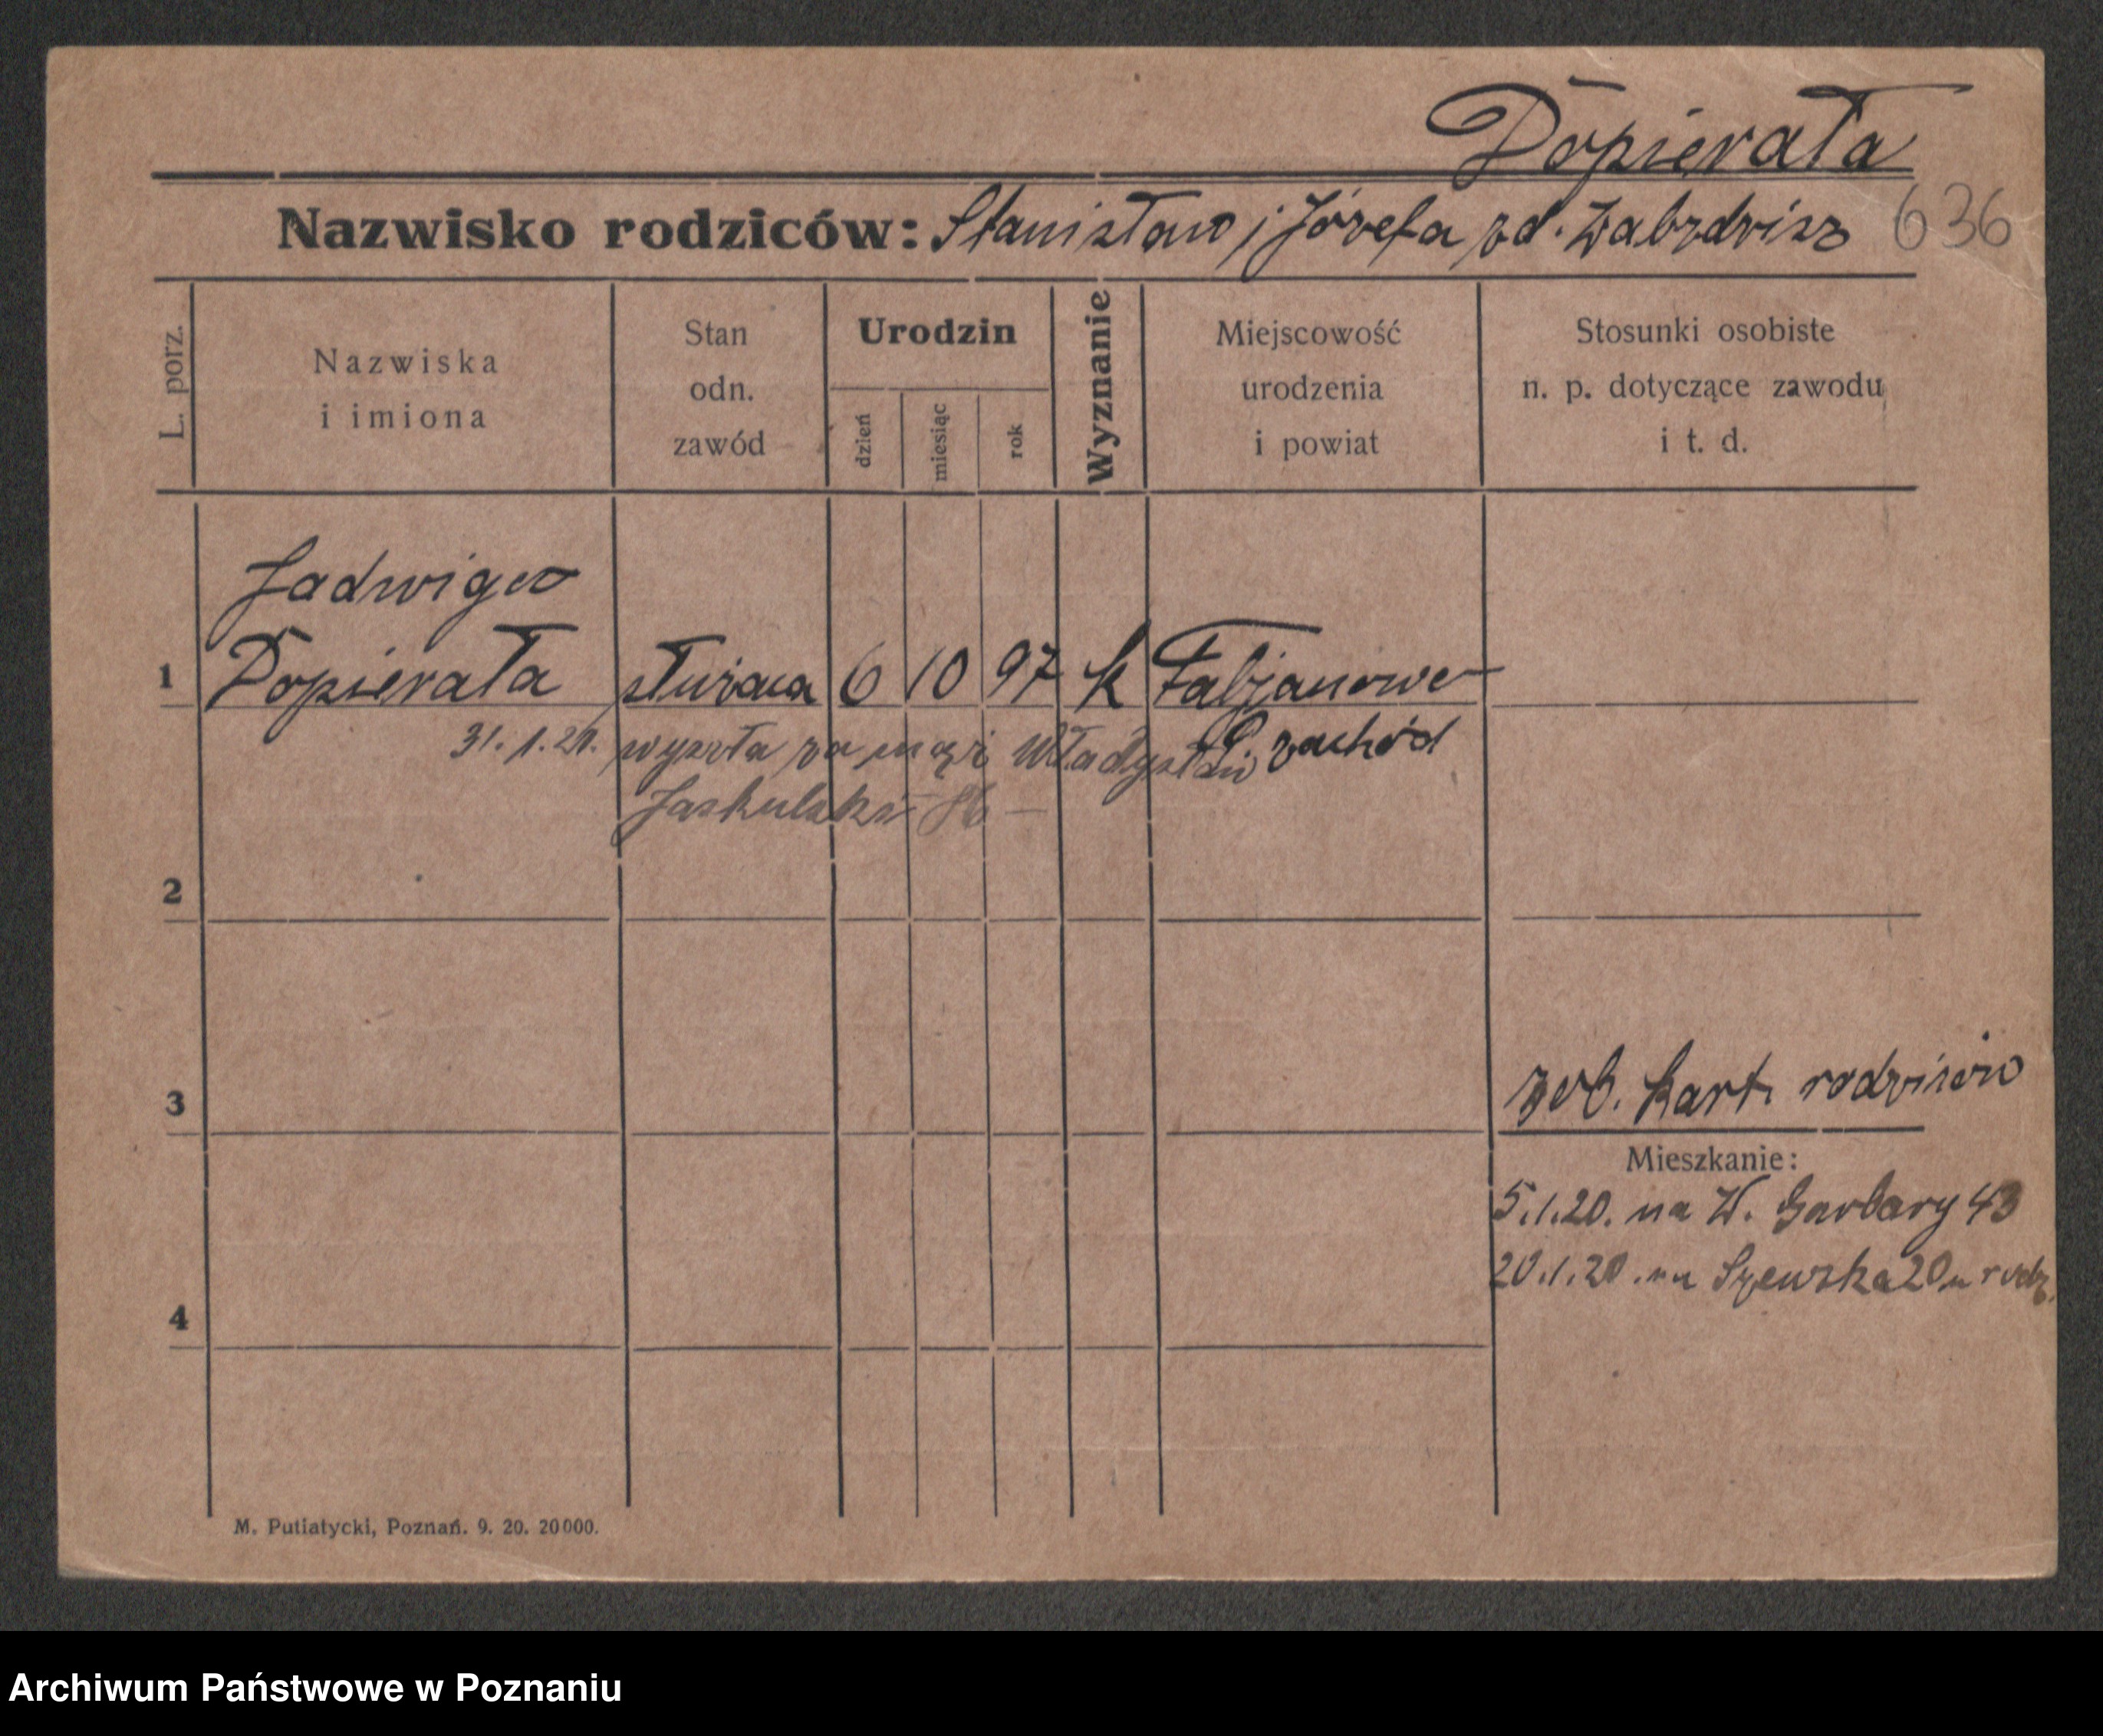 Dopierała
Nazwisko rodziców: Stanisław i Józefa zd. 636
L. porz.
Nazwiska
i imiona
Stan
odn.
zawód
Urodzin
dzień
miesiąc
rok
Wyznanie
Miejscowość
urodzenia
i powiat
Stosunki osobiste
n. p. dotyczące zawodu
i t. d.
Jadwiga
1 Dopierała służąca 6 10 97 k Fabjanowo
P. zachód
wyszła za mąż Władysław
Jaskulski
2
3
zob. kart. rodziców
Mieszkanie:
5.1.20. na W. Garbary 43
20.1.20. na Szewska 20 u rodz.
4
M. Putiatycki, Poznań. 9. 20. 20000.
Archiwum Państwowe w Poznaniu